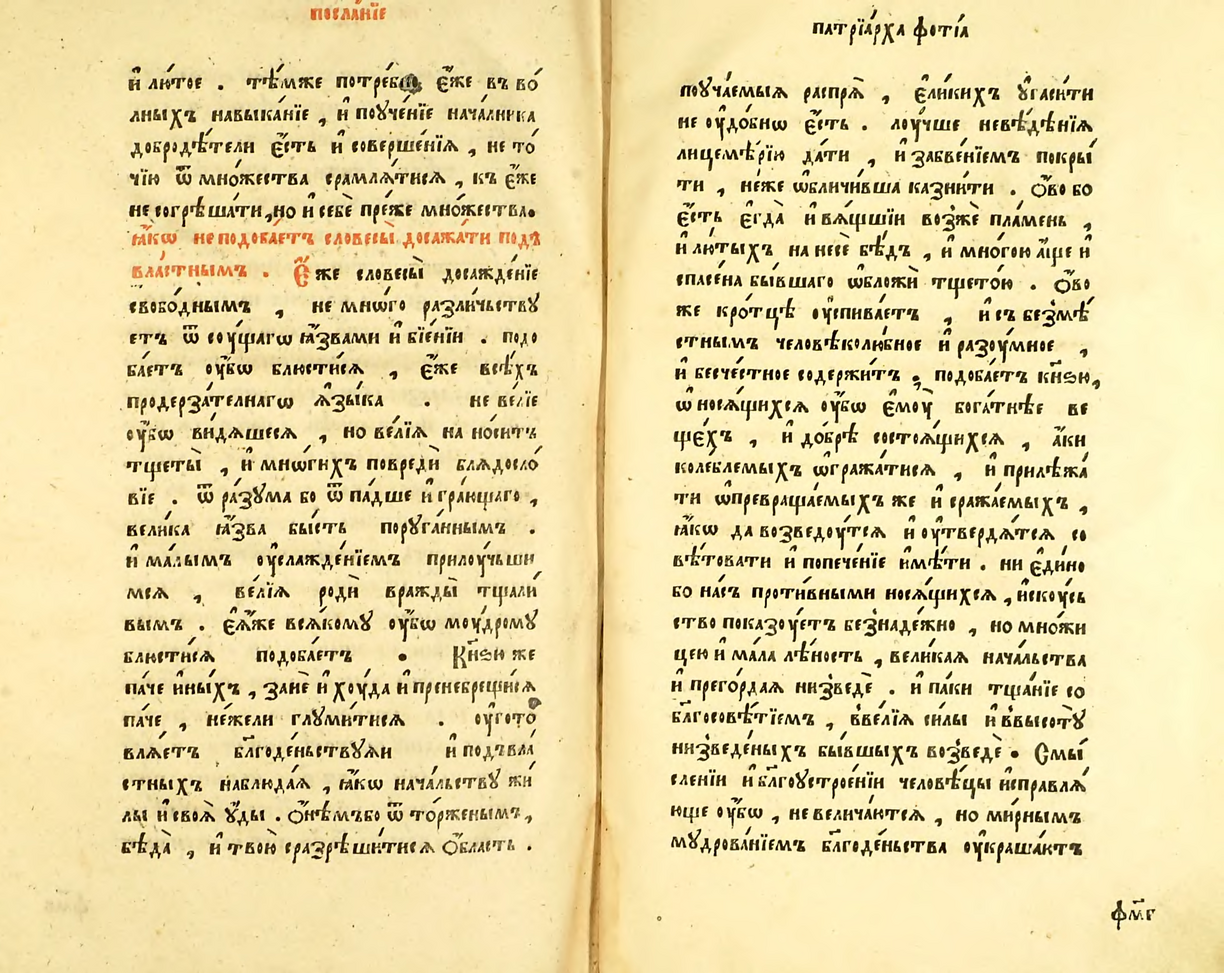 посла́нїе
и҆ лю́тое . тѣ́мже потре́бно є҆́же въ во́
лныхъ навыка́нїе , и҆ поуче́нїе нача́лника
добродѣ́тели є҆́сть и҆ соверше́нїѧ , не то́
чїю ѿ мно́жества срамлѧ́тисѧ , къ є҆́же
не согрѣша́ти , но и҆ себѐ пре́же мно́жества .
ꙗ҆́кѡ не подоба́етъ словесы̀ досажа́ти подъ
вла́стнымъ . Є҆́же словесы̀ досажде́нїе
свобо́днымъ , не мнѡ́го разли́чьствꙋ
етъ ѿ соу́щагѡ ꙗ҆́звами и҆ бїе́нїи . подо
ба́етъ оу҆́бѡ блюсти́сѧ , є҆́же всѣ́хъ
продерза́телнагѡ ѧ҆зы́ка . не ве́лїе
оу҆́бѡ ви́дѧшесѧ , но ве́лїѧ на но́ситъ
тщеты̀ , и҆ мнѡ́гихъ повредѝ блѧдосло́
вїе . ѿ ра́зꙋма бо ѿ па́дше и҆ гра́ющаго ,
вели́ка ꙗ҆́зва бы́сть порꙋ́ганнымъ .
и҆ ма́лымъ оу҆слажде́нїемъ прилоу́чьши
мсѧ , ве́лїѧ родѝ вражды̀ тщали́
вымъ . є҆ѧ҆́же всѧ́комꙋ оу҆́бѡ моу́дромꙋ
блюсти́сѧ подоба́етъ . Кн҃ѕю же
па́че и҆ны́хъ , занѐ и҆ хоу́да и҆ пренебрещи́сѧ
па́че , не́жели глꙋми́тисѧ . оу҆гото
влѧ́етъ бл҃годе́ньствꙋѧи и҆ подъвла́
стныхъ наблюда́ѧ , ꙗ҆́кѡ нача́льствꙋ жи́
лы и҆ своѧ̀ ꙋ҆́ды . ѻ҆нѣ́мъ бо ѿ то́рженымъ ,
бѣда̀ , и҆ твою̀ сразрѣши́тисѧ ѻ҆́бласть .
патрїа́рха фоті́а
поуча́емыѧ распрѧ̀ , є҆ли́кихъ ꙋ҆гаси́ти
не оу҆до́бнѡ є҆́сть . лоу́чше невѣ́дѣнїѧ
лицемѣ́рїю да́ти , и҆ забве́нїемъ покры́
ти , не́же ѡ҆бличи́вша казни́ти . ѻ҆́во бо
є҆́сть є҆гда̀ и҆ вѧ́щшїи возжѐ пла́мень ,
и҆ лю́тыхъ на несѐ бѣ́дъ , и҆ мно́гою а҆́ще и҆
спасе́на бы́вшаго ѡ҆бложѝ тщето́ю . ѻ҆́во
же кро́тцѣ оу҆спива́етъ , и҆ съ безмѣ́
стнымъ человѣколю́бное и҆ разоу́мное ,
и҆ бесче́стное содержи́тъ . подоба́етъ кн҃ѕю ,
ѡ҆ носѧ́щихсѧ оу҆́бѡ є҆моу̀ бога́тнѣе ве
ще́хъ , и҆ до́брѣ состоѧ́щихсѧ , а҆́ки
коле́блемыхъ ѡ҆гражда́тисѧ , и҆ прилѣжа́
ти ѡ҆превраща́емыхъ же и҆ сража́емыхъ ,
ꙗ҆́кѡ да возведоу́тсѧ и҆ оу҆твердѧ́тсѧ со
вѣ́товати и҆ попече́нїе и҆мѣ́ти . ни є҆ди́но
бо на́съ проти́вными носѧ́щихсѧ , и҆скоу́сь
ство показоу́етъ безнаде́жно , но мно́жи
цею и҆ ма́ла лѣ́ность , вели́каѧ нача́льства
и҆ прего́рдаѧ низведѐ . и҆ па́ки тща́нїе со
бл҃госовѣ́тїемъ , вве́лїѧ си́лы и҆ ввысотꙋ̀
низведе́ныхъ бы́вшыхъ возведѐ . Смы́
сленїи и҆ бл҃гоустрое́нїи человѣ́цы и҆справлѧ́
юще оу҆́бѡ , не велича́ютсѧ , но ми́рнымъ
мꙋдрова́нїемъ бл҃годе́ньства оу҆краша́ютъ
фм҃г